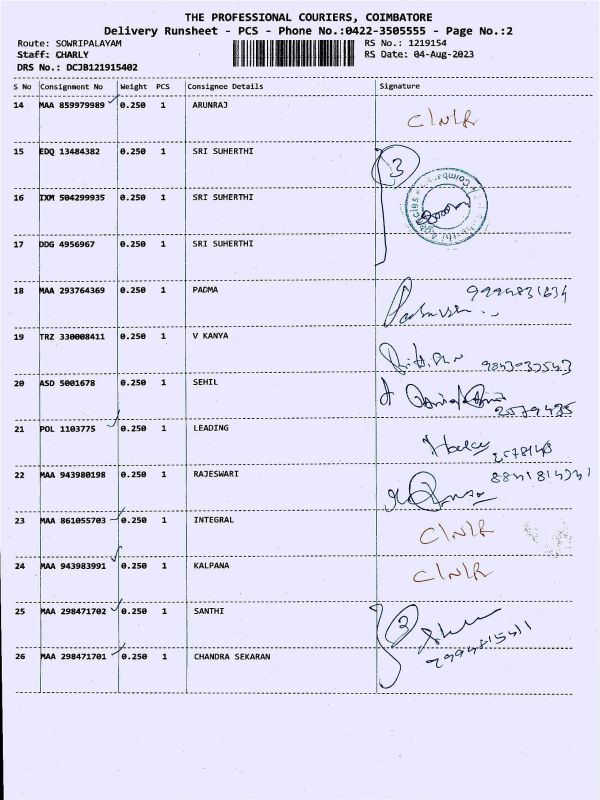 THE PROFESSIONAL COURIERS, COIMBATORE
Delivery Runsheet - PCS - Phone No.:0422-3505555 - Page No.:2
Route: SOWRIPALAYAM RS No.: 1219154
Staff: CHARLY RS Date: 04-Aug-2023
DRS No.: DCJB121915402
S No Consignment No Weight PCS Consignee Details Signature
14 MAA 859979989 0.250 1 ARUNRAJ C/N/R
15 EDQ 13484382 0.250 1 SRI SUHERTHI 3
16 IXM 504299935 0.250 1 SRI SUHERTHI
17 DDG 4956967 0.250 1 SRI SUHERTHI
18 MAA 293764369 0.250 1 PADMA
19 TRZ 330008411 0.250 1 V KANYA
20 ASD 5001678 0.250 1 SEHIL 2579435
21 POL 1103775 0.250 1 LEADING
22 MAA 943980198 0.250 1 RAJESWARI
23 MAA 861055703 0.250 1 INTEGRAL C/N/R
24 MAA 943983991 0.250 1 KALPANA C/N/R
25 MAA 298471702 0.250 1 SANTHI 2
26 MAA 298471701 0.250 1 CHANDRA SEKARAN